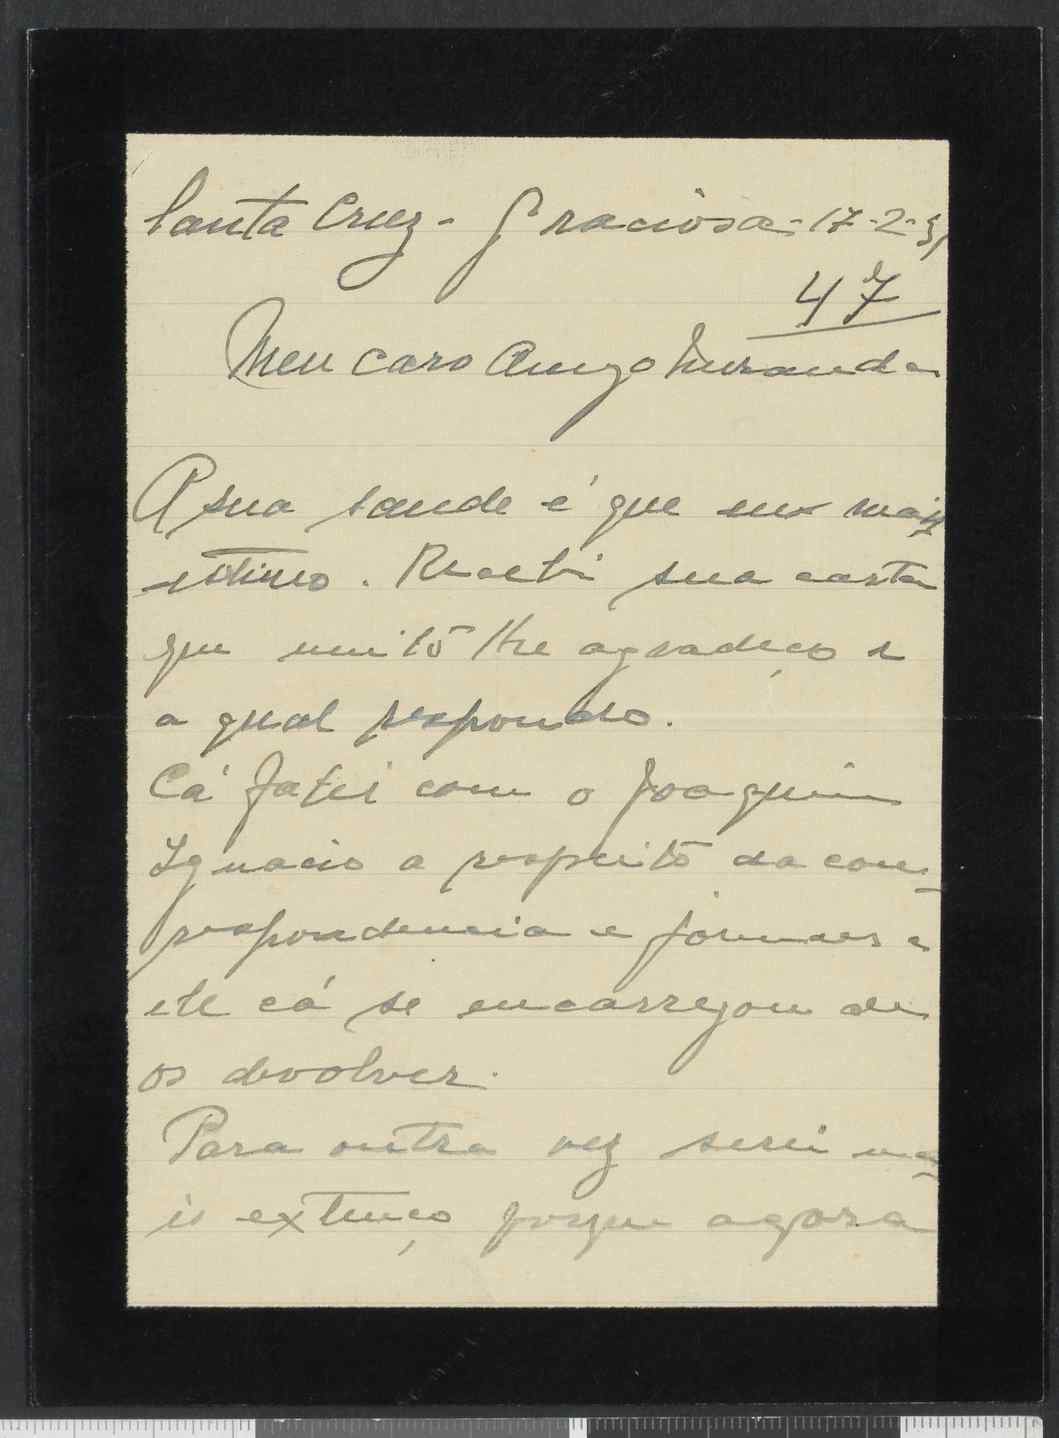 Santa Cruz - Graciosa - 17-2-31
47
Meu caro Amigo Miranda
A sua saude é que eu mais
estimo. Recebi sua carta
que muito lhe agradeço e
a qual respondo.
Cá falei com o Joaquim
Ignacio a respeito da com-
respondencia e jornaes e
ele cá se encarregou de
os devolver.
Para outra vez serei ma-
is extenço porque agora